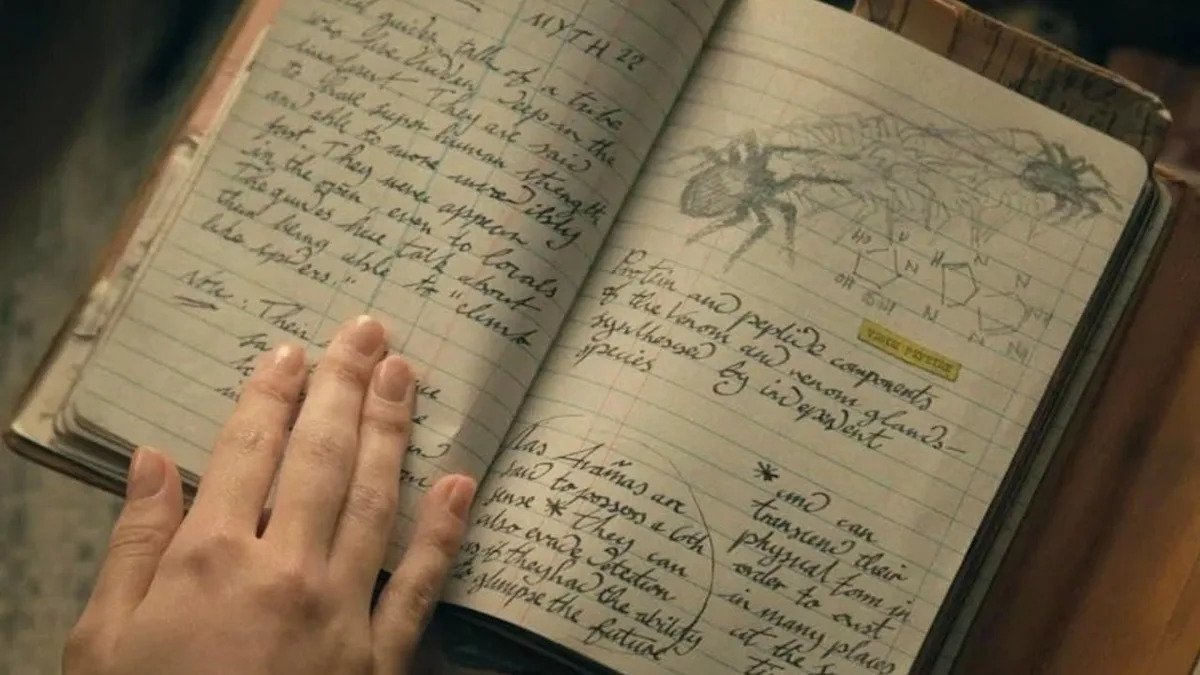 MYTH 22
guides talk of a tribe
who live hidden deep in the
rainforest. They are said
to have super human strength
and able to move incredibly
fast. They never appear
in the open, even to locals.
The guides here talk about
them being able to "climb
like spiders."
NOTE: Their
Protien and peptide components
of the venom and venom glands—
synthesised by independent
species
HO
N
H
N
N
OH
N
N
N
Las Arañas are
said to possess a 6th
sense * They can
also evade detection
as if they had the ability
to glimpse the future
* and can
transcend their
physical form in
order to exist
in many places
at the